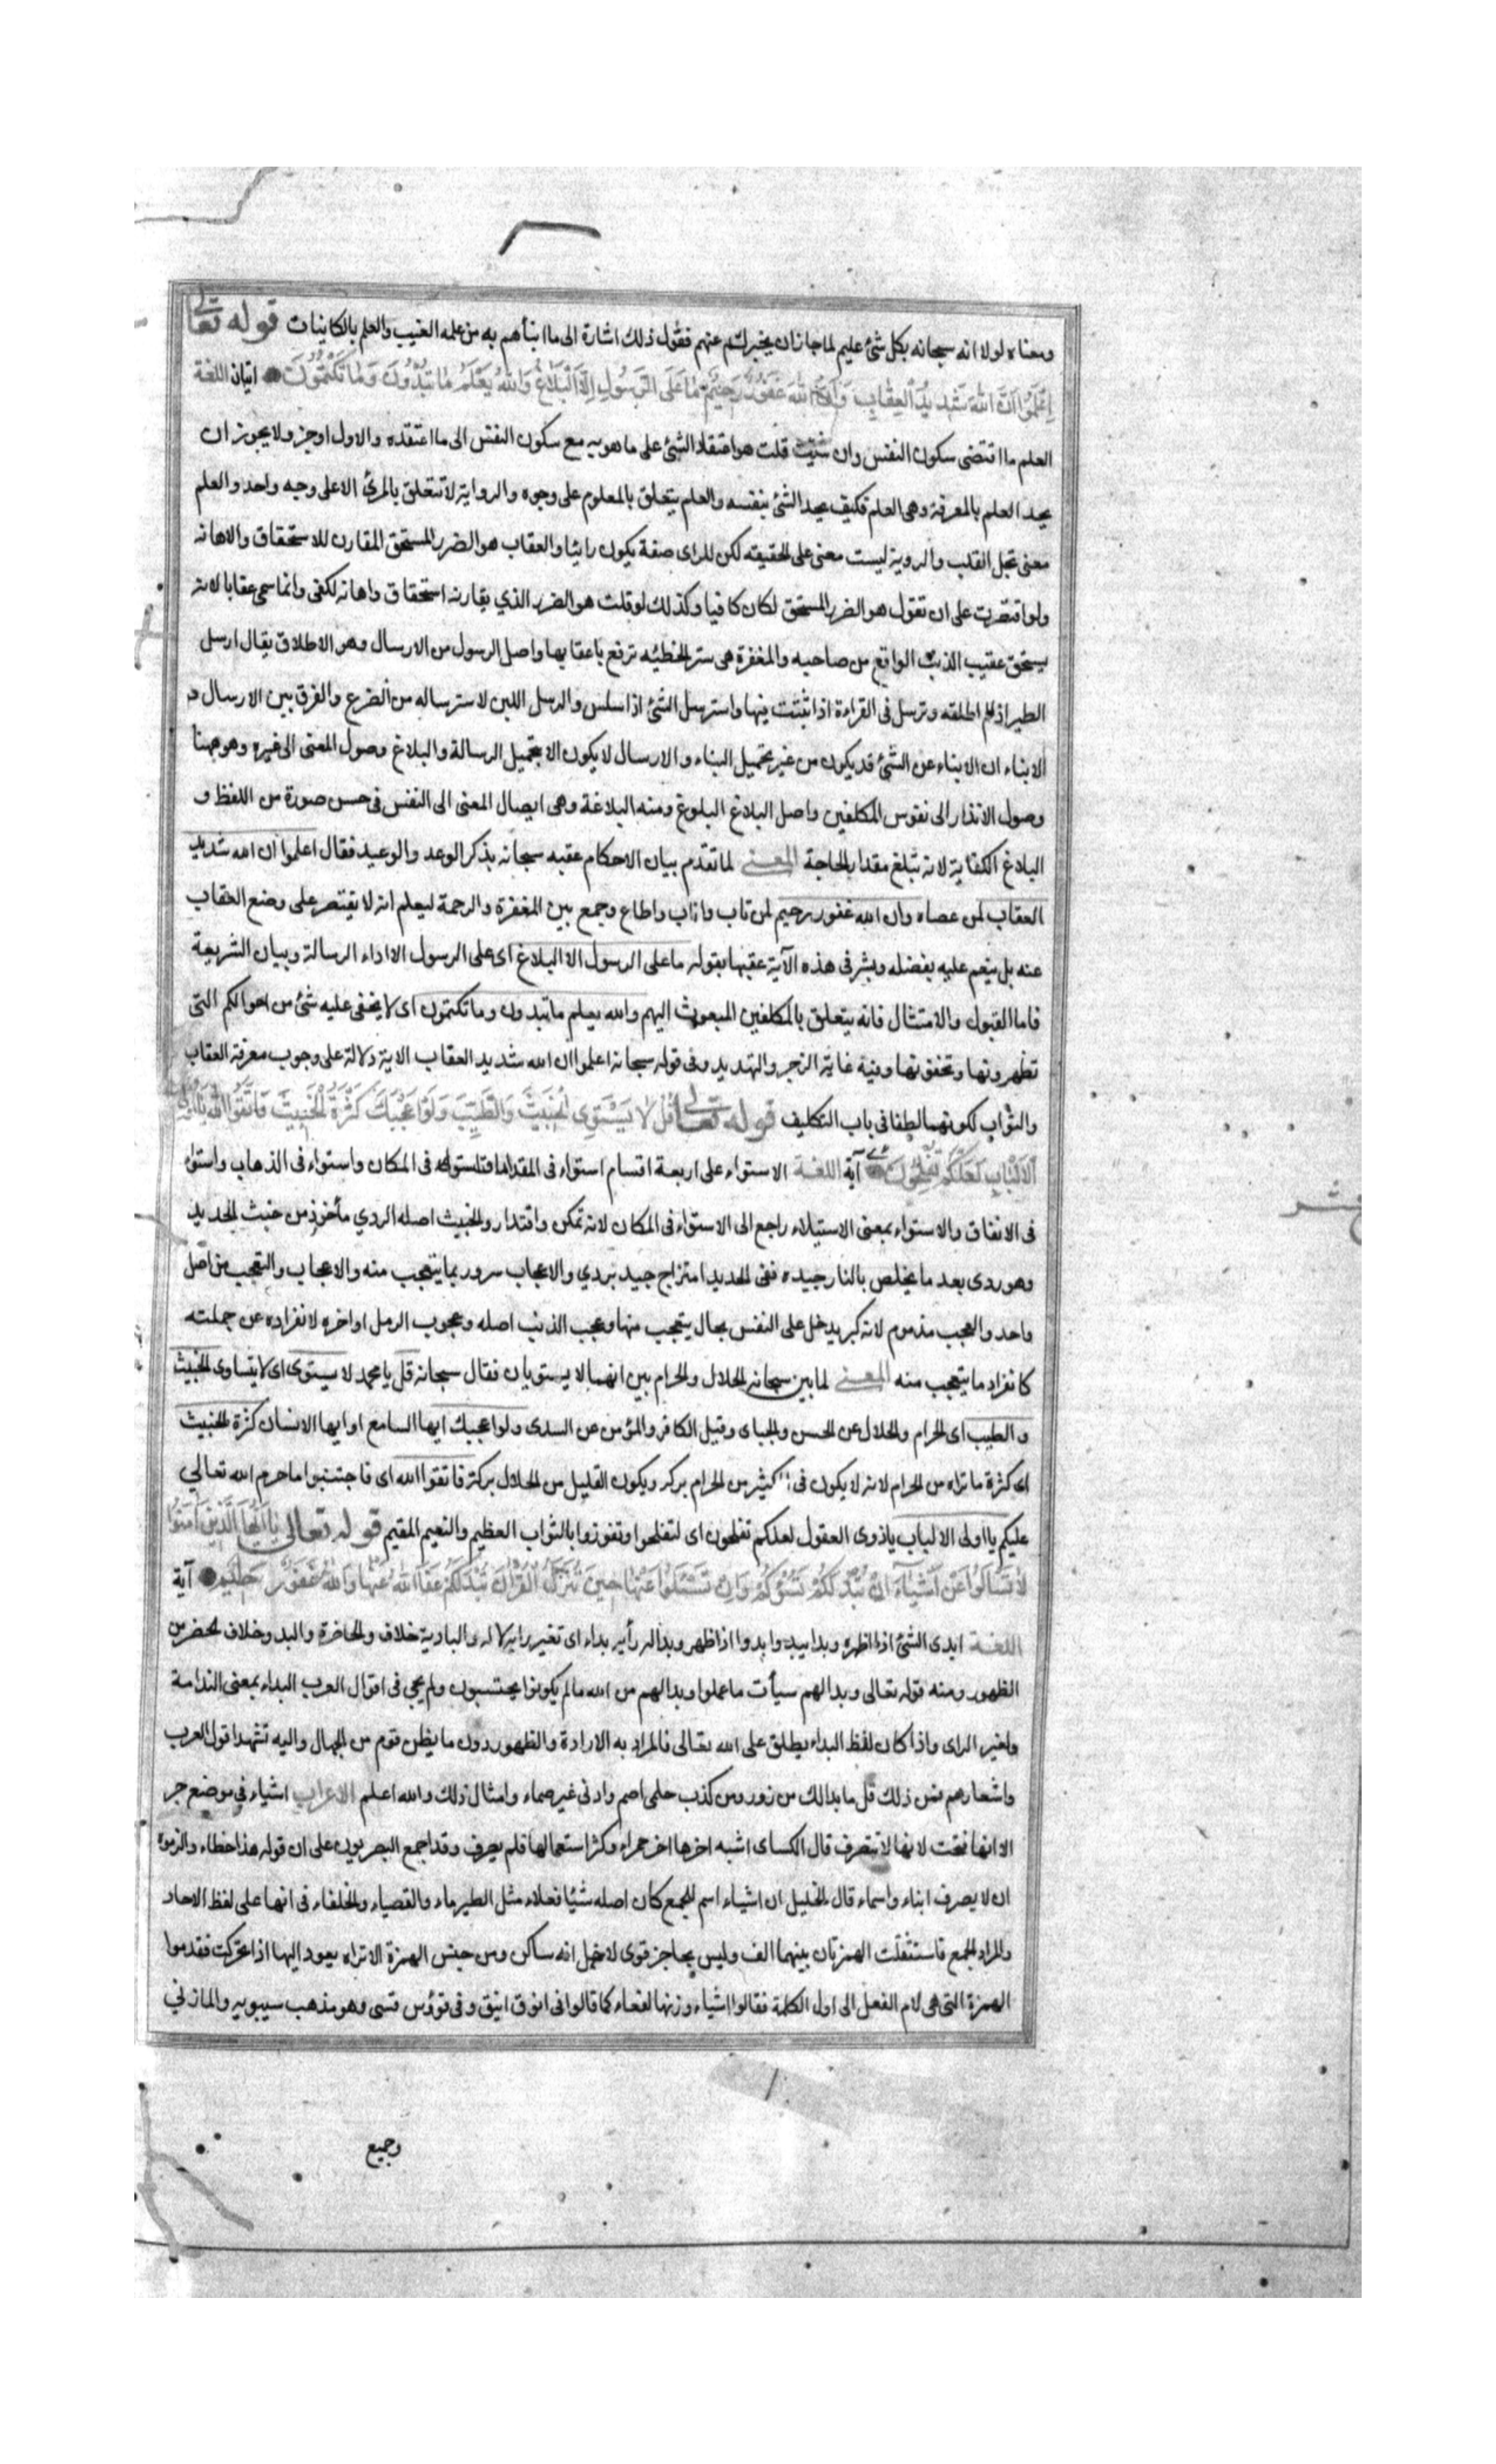 ومعناه لولا انه سبحانه بكل شئ عليم لما جاز ان يخبركم عنهم فقول ذلك اشارة الى ما انبأهم به من علمه الغيب والعلم بالكاينات قوله تعالى
اِعْلَمُوا اَنَّ اللهَ شَدِيدُ الْعِقَابِ وَاَنَّ اللهَ غَفُورٌ رَحِيمٌ مَا عَلَى الرَّسُولِ اِلَّا الْبَلَاغُ وَاللهُ يَعْلَمُ مَا تُبْدُونَ وَمَا تَكْتُمُونَ اتيان اللغة
العلم ما اقتضى سكون النفس وان شئت قلت هو اعتقاد الشئ على ما هو به مع سكون النفس الى ما اعتقده والاول اوجز ولا يجوز ان
يحد العلم بالمعرفة وهى العلم فكيف يحد الشئ بنفسه والعلم يتعلق بالمعلوم على وجوه والرواية لا تتعلق بالمرئ الا على وجه واحد والعلم
معنى يحل القلب والروية ليست معنى على الحقيقه لكن للراى صفة بكون رائيا والعقاب هو الضرر المستحق المقارن للاستحقاق والاهانه
ولو اقتصرت على ان تقول هو الضرر المستحق لكان كافيا وكذلك لو قلت هو الضرر الذي يقارنه استحقاق واهانه لكفى وانما سمى عقابا لانه
يستحق عقيب الذنب الواقع من صاحبه والمغفرة هى ستر الخطيئه ترفع باعقابها واصل الرسول من الارسال وهو الاطلاق يقال ارسل
الطير اذا اطلقه وترسل فى القراءة اذا تثبت فيها واسترسل الشئ اذا سلس والرسل اللبن لاسترساله من الضرع والفرق بين الارسال و
الانباء ان الانباء عن الشئ قد يكون من غير تحميل النباء والارسال لا يكون الا بتحميل الرسالة والبلاغ وصول المعنى الى غيره وهو ههنا
وصول الانذار الى نفوس المكلفين واصل البلاغ البلوغ ومنه البلاغة وهى ايصال المعنى الى النفس فى حسن صورة من اللفظ و
البلاغ الكفاية لانه تبلغ مقدار الحاجة المعنى لما تقدم بيان الاحكام عقبه سبحانه بذكر الوعد والوعيد فقال اعلموا ان الله شديد
العقاب لمن عصاه وان الله غفور رحيم لمن تاب واناب واطاع وجمع بين المغفرة والرحمة ليعلم انه لا يقتصر على وضع العقاب
عنه بل ينعم عليه بفضله وبشر فى هذه الآية عقبها بقوله ما على الرسول الا البلاغ اى على الرسول الا اداء الرسالة وبيان الشريعة
فاما القبول والامتثال فانه يتعلق بالمكلفين المبعوث اليهم والله يعلم ما تبدون وما تكتمون اى لا يخفى عليه شئ من احوالكم التى
تظهرونها وتخفونها وفيه غاية الزجر والتهديد وفى قوله سبحانه اعلموا ان الله شديد العقاب الاية دلالة على وجوب معرفة العقاب
والثواب لكونهما لطفا فى باب التكليف قوله تعالى قُلْ لَا يَسْتَوِى الْخَبِيثُ وَالطَّيِّبُ وَلَوْ اَعْجَبَكَ كَثْرَةُ الْخَبِيثِ فَاتَّقُوا اللهَ يَا اُولِى
الْاَلْبَابِ لَعَلَّكُمْ تُفْلِحُونَ آية اللغة الاستواء على اربعة اقسام استواء فى المقدار واستواء فى المكان واستواء فى الذهاب واستواء
فى الانفاق والاستواء بمعنى الاستيلاء راجع الى الاستواء فى المكان لانه تمكن واقتدار والخبيث اصله الردي مأخوذ من خبث الحديد
وهو ردى بعد ما يخلص بالنار جيده ففى الحديد امتزاج جيد بردي والاعجاب سرور بما يتعجب منه والاعجاب والتعجب من اصل
واحد والعجب مذموم لانه كبر يدخل على النفس بحال يتعجب منها وعجب الذنب اصله وعجوب الرمل اواخره لانفراده عن جملته
كانفراد ما يتعجب منه المعنى لما بين سبحانه الحلال والحرام بين انهما لا يستويان فقال سبحانه قل يا محمد لا يستوى اى لا يتساوى الخبيث
والطيب اى الحرام والحلال عن الحسن والجباى وقيل الكافر والمؤمن عن السدى ولو اعجبك ايها السامع او ايها الانسان كثرة الخبيث
اى كثرة ما تراه من الحرام لانه لا يكون فى الكثير من الحرام بركة ويكون القليل من الحلال بركة فاتقوا الله اى فاجتنبوا ما حرم الله تعالى
عليكم يا اولى الالباب ياذوى العقول لعلكم تفلحون اى لتفلحوا وتفوزوا بالثواب العظيم والنعيم المقيم قوله تعالى يَا اَيُّهَا الَّذِينَ آمَنُوا
لَا تَسْاَلُوا عَنْ اَشْيَاءَ اِنْ تُبْدَ لَكُمْ تَسُؤْكُمْ وَاِنْ تَسْئَلُوا عَنْهَا حِينَ يُنَزَّلُ الْقُرْآنُ تُبْدَ لَكُمْ عَفَا اللهُ عَنْهَا وَاللهُ غَفُورٌ حَلِيمٌ آية
اللغة ابدى الشئ اذا اظهره وبدا يبدوا بدوا اذا ظهر وبدا له رأيه بداء اى تغير رايه لا له والبادية خلاف والحاضرة والبدو خلاف الحضر من
الظهور ومنه قوله تعالى وبدا لهم سيأت ما عملوا وبدا لهم من الله ما لم يكونوا يحتسبون ولم يجى فى اقوال العرب البداء بمعنى الندامة
ولغير الراى واذا كان لفظ البداء يطلق على الله تعالى فالمراد به الارادة والظهور دون ما يظن قوم من الجهال واليه تشهد اقول العرب
واشعارهم فمن ذلك قل ما بدا لك من زور ومن كذب حلمى اصم واذنى غير صماء وامثال ذلك والله اعلم الاعراب اشياء فى موضع جر
الا انها فتحت لانها لا تنصرف قال الكساى اشبه اخرها اخر حمراء وكثر استعمالها فلم يصرف وقد اجمع البصريون على ان قوله هذا خطاء والزموه
ان لا يصرف ابناء واسماء قال الخليل ان اشياء اسم للجمع كان اصله شيئا فعلاء مثل الطيرماء والقصباء والحلفاء فى انها على لفظ الاحاد
والمراد الجمع فاستثقلت الهمزتان بينهما الف وليس بحاجز قوى لاجل انه ساكن ومن جنس الهمزة الا تراه يعود اليها اذا تحركت فقدموا
الهمزة التى هى لام الفعل الى اول الكلمة فقالوا اشياء وزنها لفعاء كما قالوا فى انوق اينق وفى قوؤس قسى وهو مذهب سيبويه والمازني
وجميع